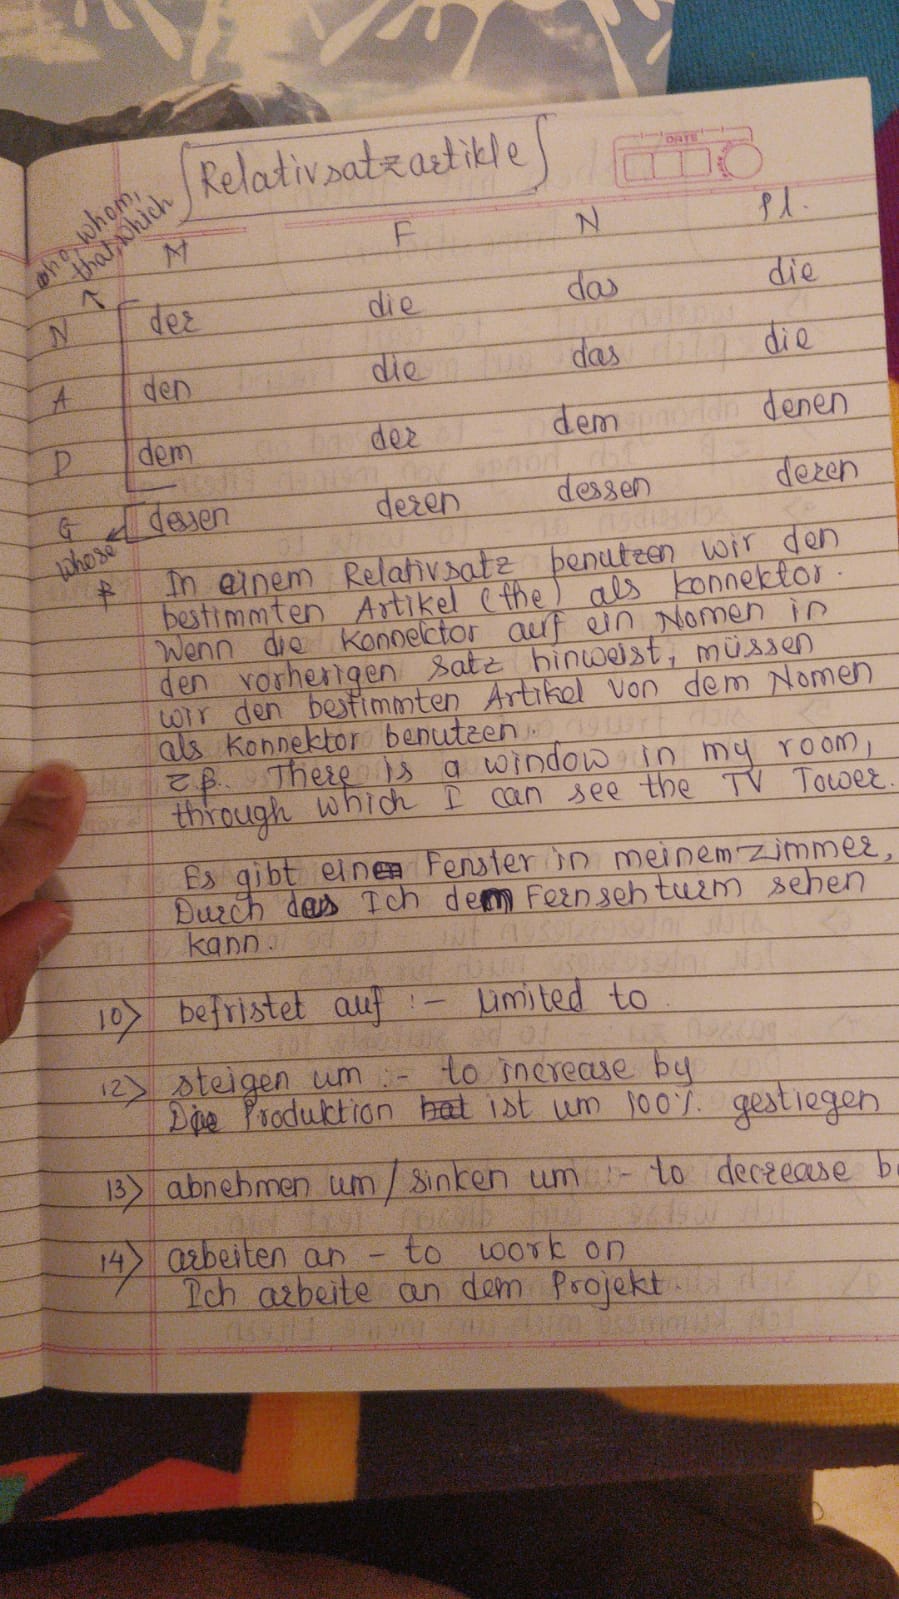 Relativsatzartikle
DATE
who, whom,
that, which
M F N Pl.
N der die das die
A den die das die
D dem der dem denen
G dessen deren dessen deren
whose
* In einem Relativsatz benutzen wir den
bestimmten Artikel (the) als Konnektor.
Wenn die Konnektor auf ein Nomen in
den vorherigen Satz hinweist, müssen
wir den bestimmten Artikel von dem Nomen
als Konnektor benutzen.
z.B. There is a window in my room,
through which I can see the TV Tower.
Es gibt ein Fenster in meinem Zimmer,
Durch das Ich dem Fernsehturm sehen
kann.
10> befristet auf :- Limited to
12> steigen um :- to increase by
Die Produktion hat ist um 100% gestiegen
13> abnehmen um / sinken um :- to decrease b
14> arbeiten an - to work on
Ich arbeite an dem Projekt.